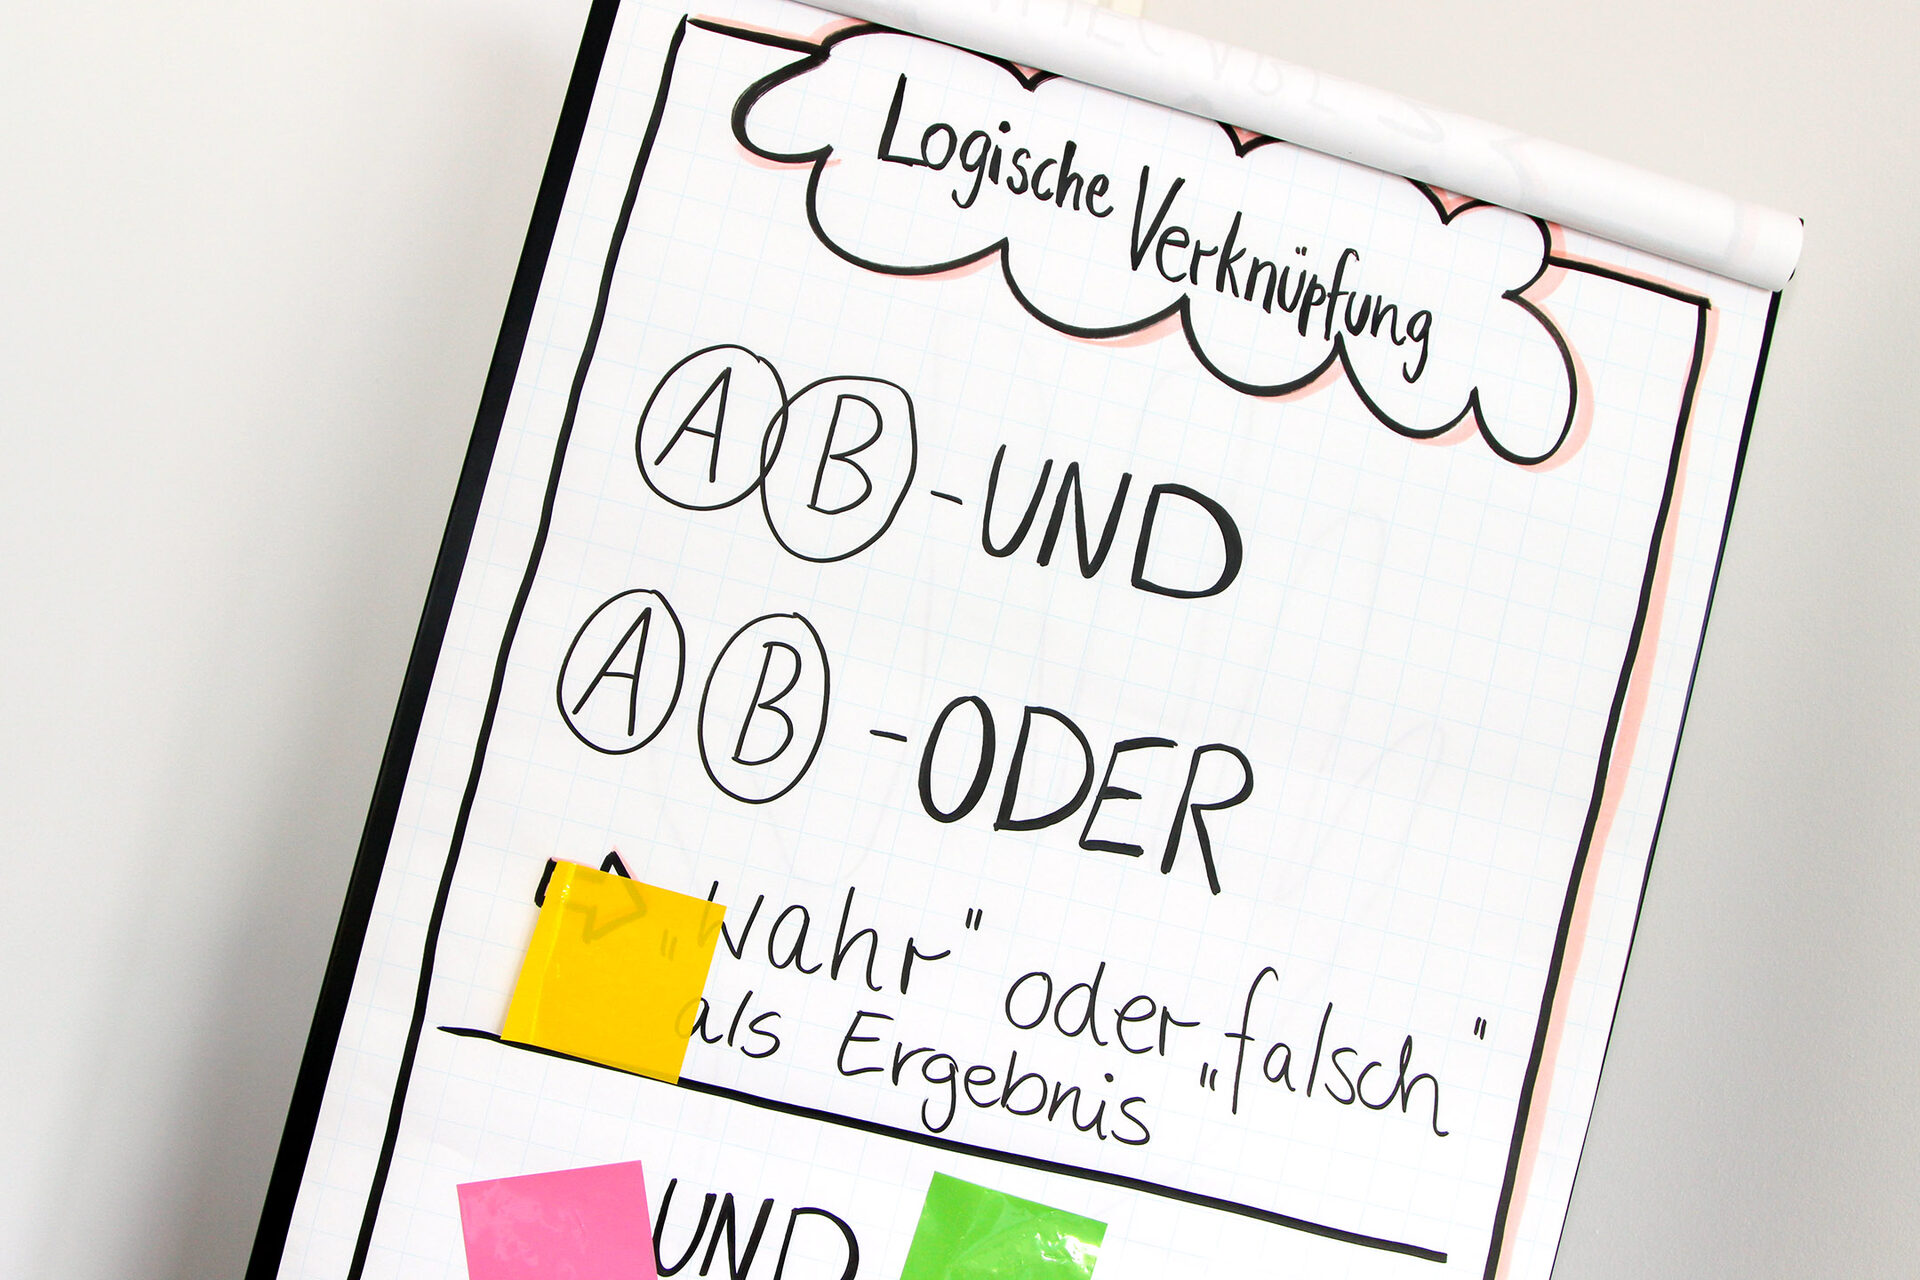 Logische Verknüpfung
A B - UND
A B - ODER
„Wahr" oder „falsch"
als Ergebnis
UND